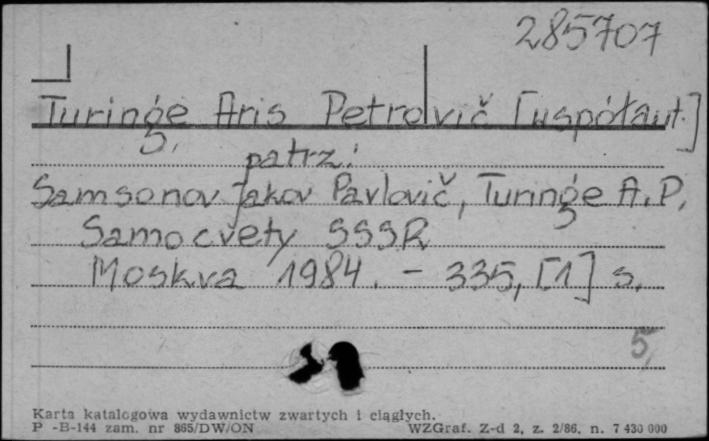 285707
Turinge Aris Petrovič [współaut.]
patrz:
Samsonov Jakov Pavlovič, Turinge A. P.
Samocvety SSSR
Moskva 1984. - 335, [1] s.
5,
Karta katalogowa wydawnictw zwartych i ciągłych.
P -B-144 zam. nr 865/DW/ON WZGraf. Z-d 2, z. 2/86, n. 7 430 000